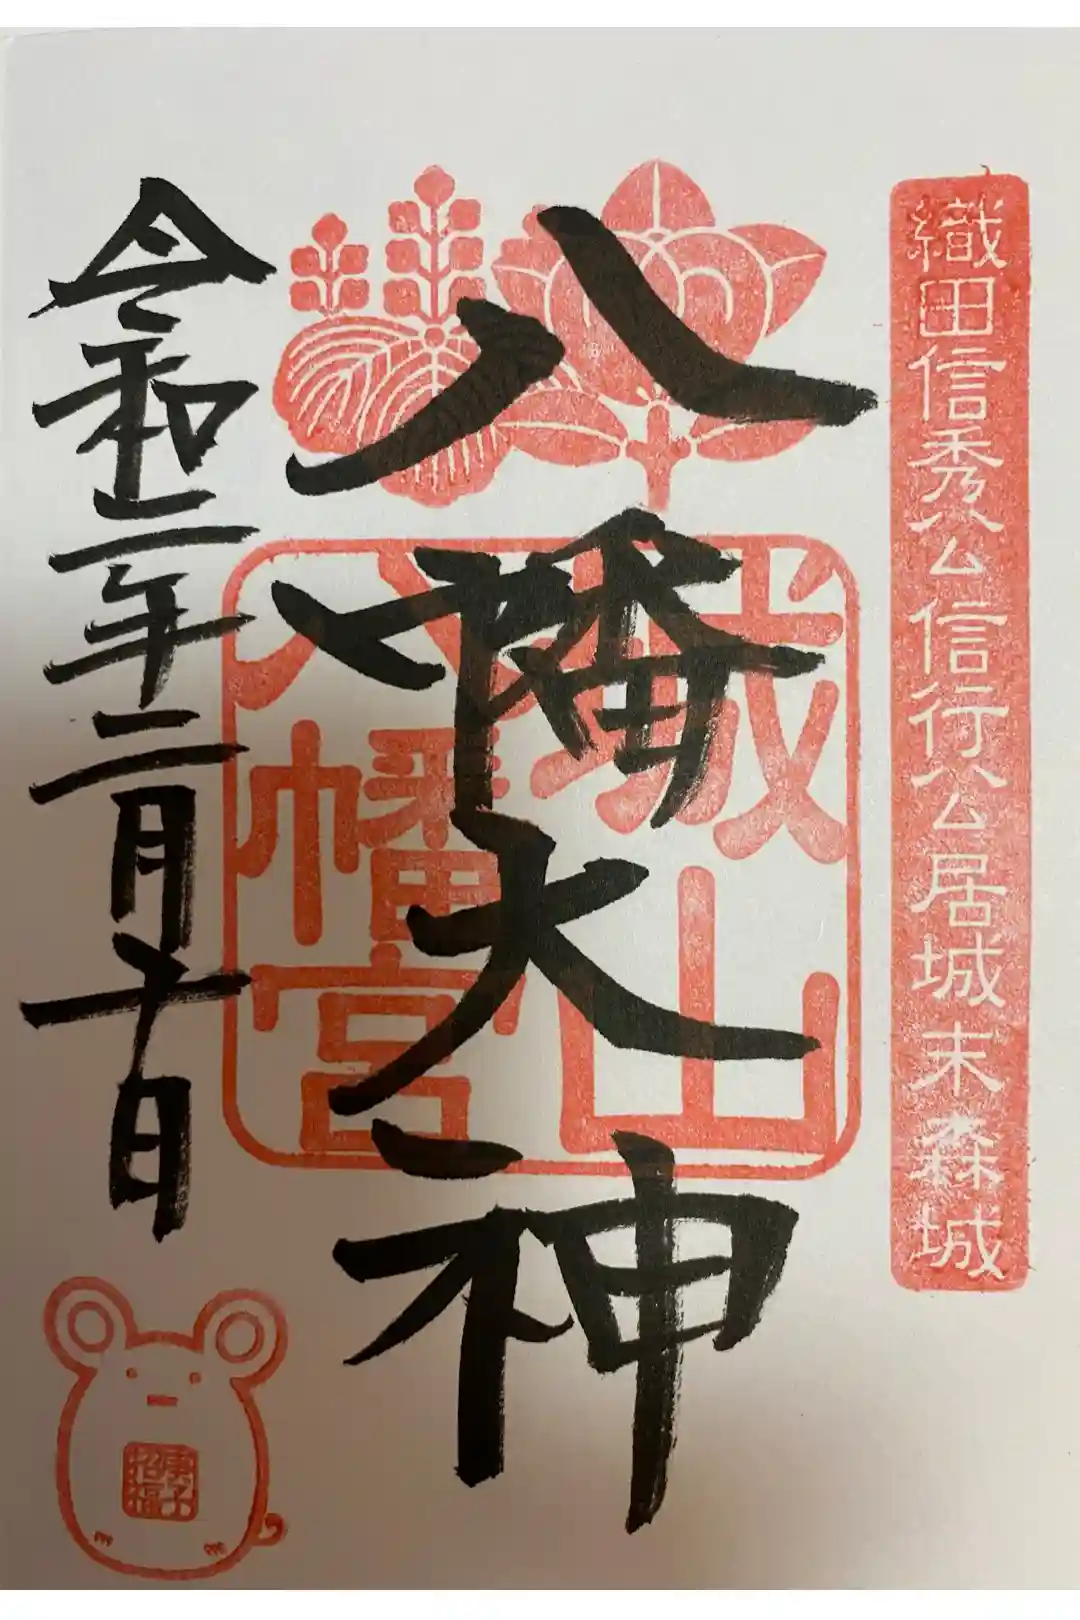 織田信秀公信行公居城末森城
八幡大神
城山
八幡宮
令和二年二月十日
庚子
招福